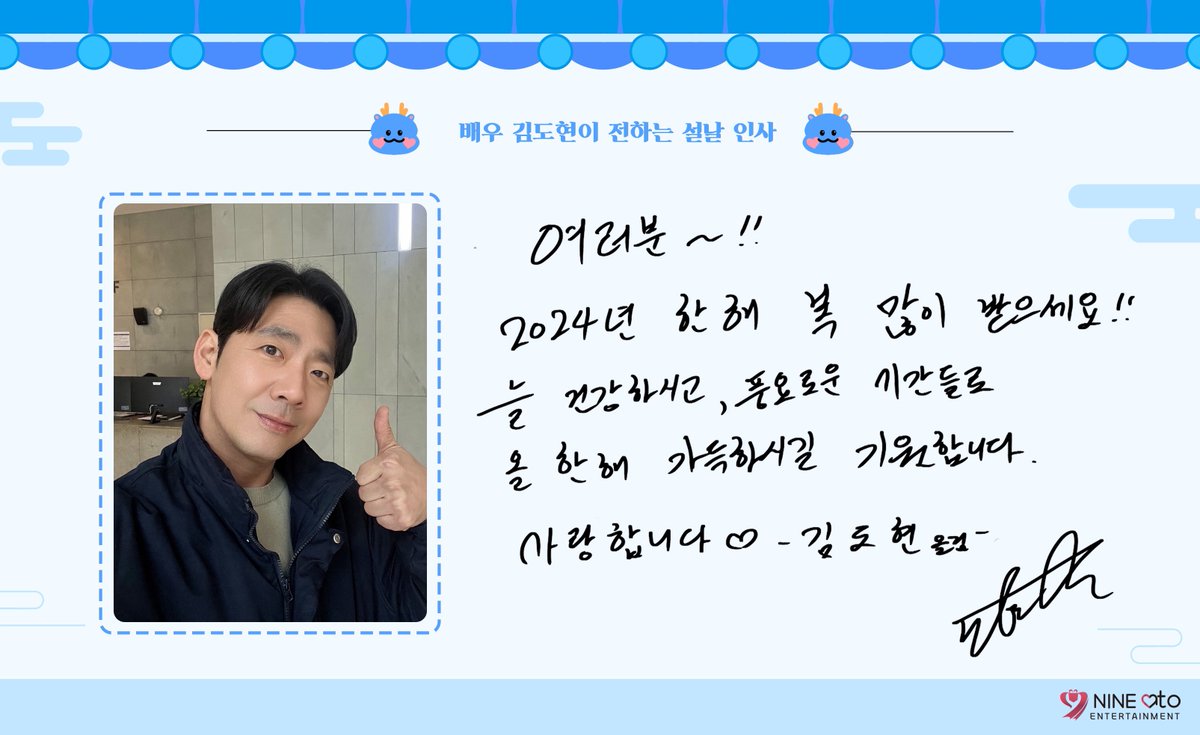 배우 김도현이 전하는 설날 인사
여러분~!!
2024년 한해 복 많이 받으세요!!
늘 건강하시고, 풍요로운 시간들로
올 한해 가득하시길 기원합니다.
사랑합니다♡ -김도현 올림-
F
NINE ato
ENTERTAINMENT